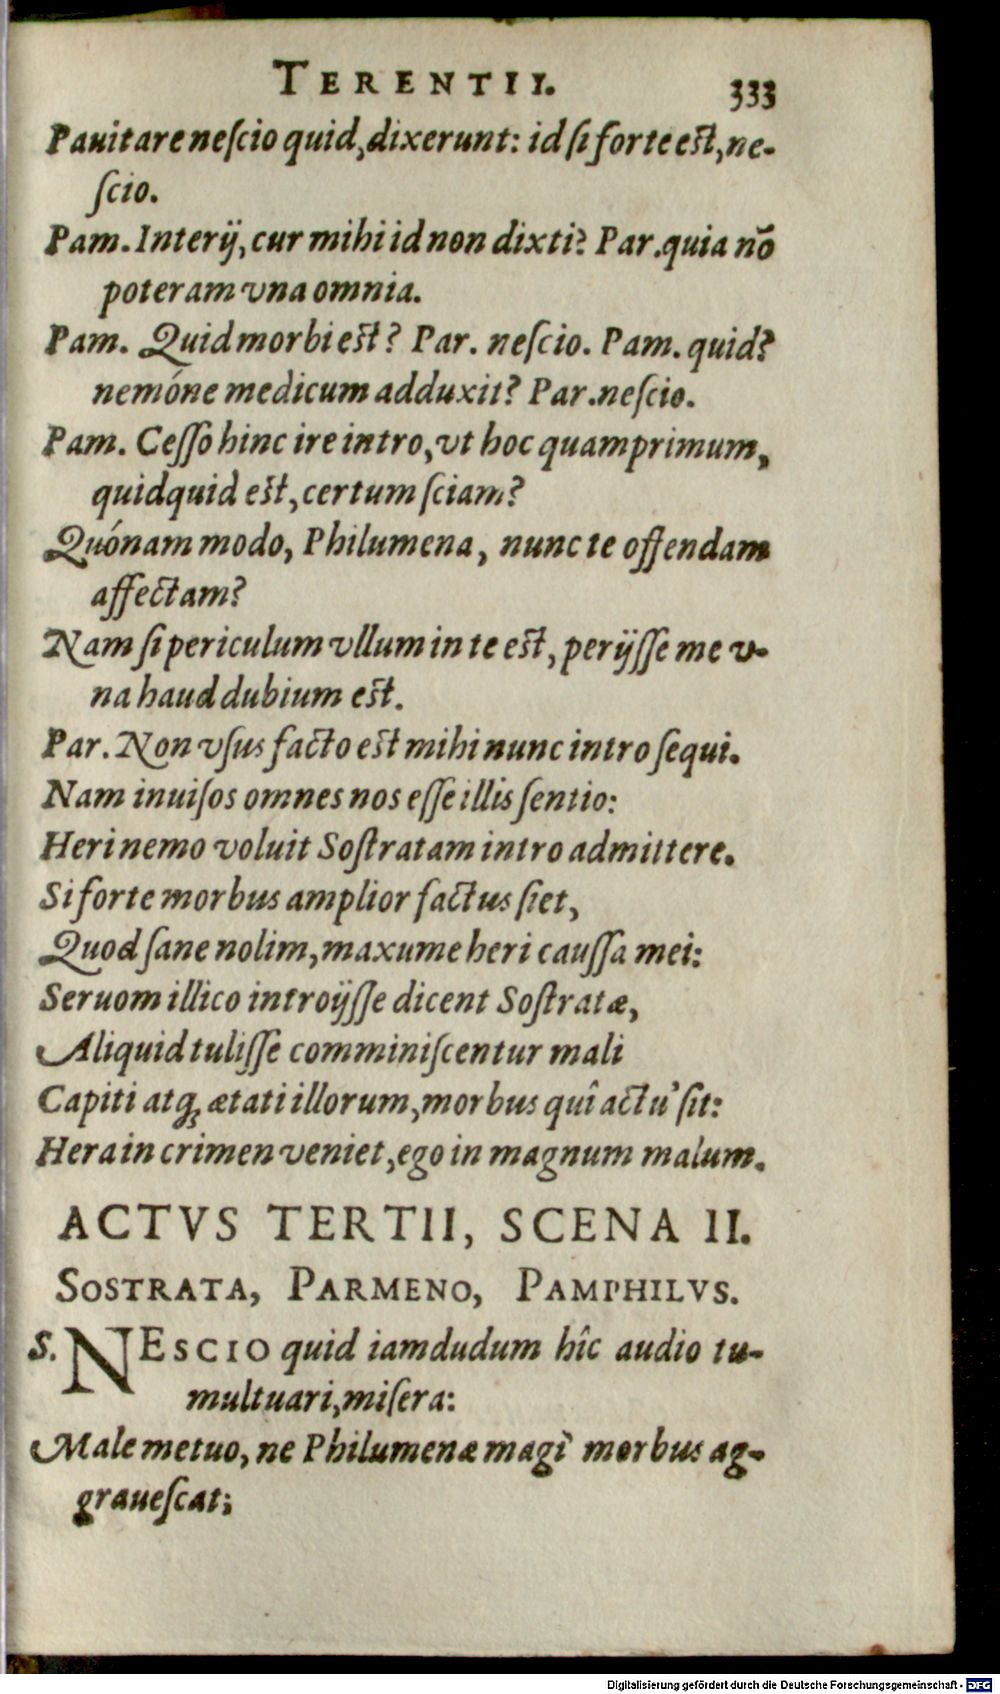 TERENTII. 333
Pauitare neſcio quid, dixerunt: id ſi forte eſt, ne-
ſcio.
Pam. Interij, cur mihi id non dixti? Par. quia nō
poteram vna omnia.
Pam. Quid morbi eſt? Par. neſcio. Pam. quid?
nemóne medicum adduxit? Par. neſcio.
Pam. Ceſſo hinc ire intro, vt hoc quamprimum,
quidquid eſt, certum ſciam?
Quónam modo, Philumena, nunc te offendam
affectam?
Nam ſi periculum vllum in te eſt, perijſſe me v-
na haud dubium eſt.
Par. Non vſus facto eſt mihi nunc intro ſequi.
Nam inuiſos omnes nos eſſe illis ſentio:
Heri nemo voluit Soſtratam intro admittere.
Si forte morbus amplior factus ſiet,
Quod ſane nolim, maxume heri cauſſa mei:
Seruom illico introijſſe dicent Soſtratæ,
Aliquid tuliſſe comminiſcentur mali
Capiti atq; ætati illorum, morbus quî actu' ſit:
Hera in crimen veniet, ego in magnum malum.
ACTVS TERTII, SCENA II.
SOSTRATA, PARMENO, PAMPHILVS.
S. NESCIO quid iamdudum hîc audio tu-
multuari, miſera:
Male metuo, ne Philumenæ magi' morbus ag-
graueſcat;
Digitalisierung gefördert durch die Deutsche Forschungsgemeinschaft - DFG